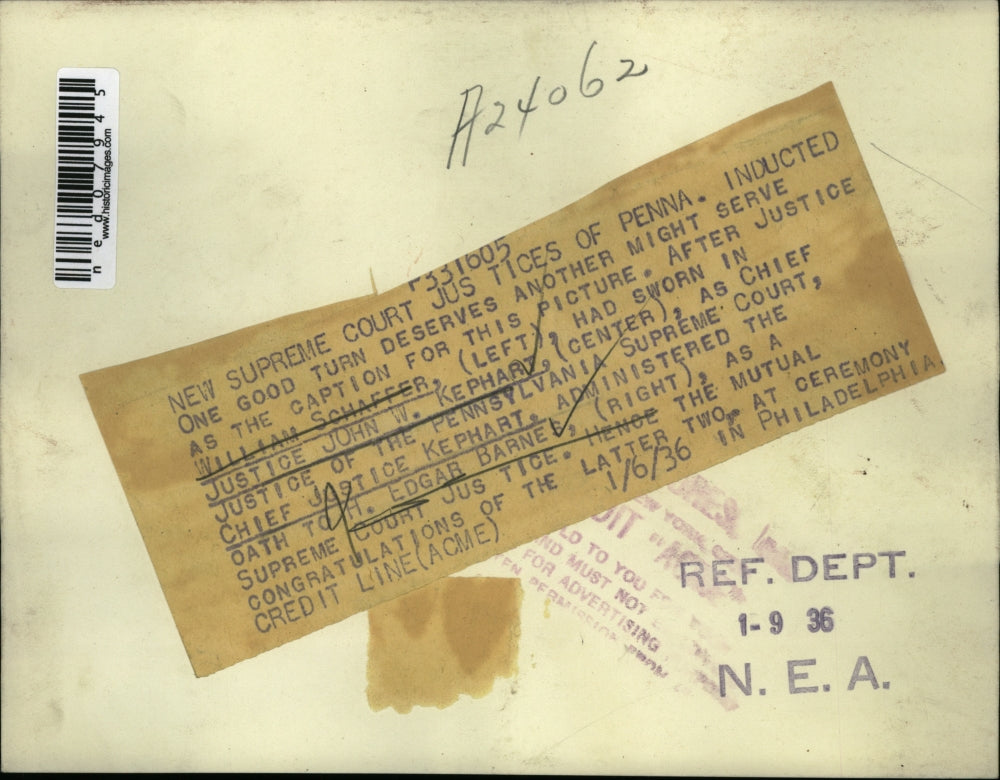 A24062
ned07945
www.historicimages.com
F331605
NEW SUPREME COURT JUS TICES OF PENNA. INDUCTED
ONE GOOD TURN DESERVES ANOTHER MIGHT SERVE
AS THE CAPTION FOR THIS PICTURE. AFTER JUSTICE
WILLIAM SCHAFFER, (LEFT), HAD SWORN IN
JUSTICE JOHN W. KEPHART, (CENTER), AS CHIEF
JUSTICE OF THE PENNSYLVANIA SUPREME COURT,
CHIEF JUSTICE KEPHART, ADMINISTERED THE
OATH TO H. EDGAR BARNE, (RIGHT), AS A
SUPREME COURT JUS TICE. HENCE THE MUTUAL
CONGRATULATIONS OF THE LATTER TWO, AT CEREMONY
CREDIT LINE(ACME) 1/6/36 IN PHILADELPHIA.
NEW YORK
LD TO YOU
ND MUST NOT
FOR ADVERTISING
PERMISSION FROM
REF. DEPT.
1-9 36
N. E. A.